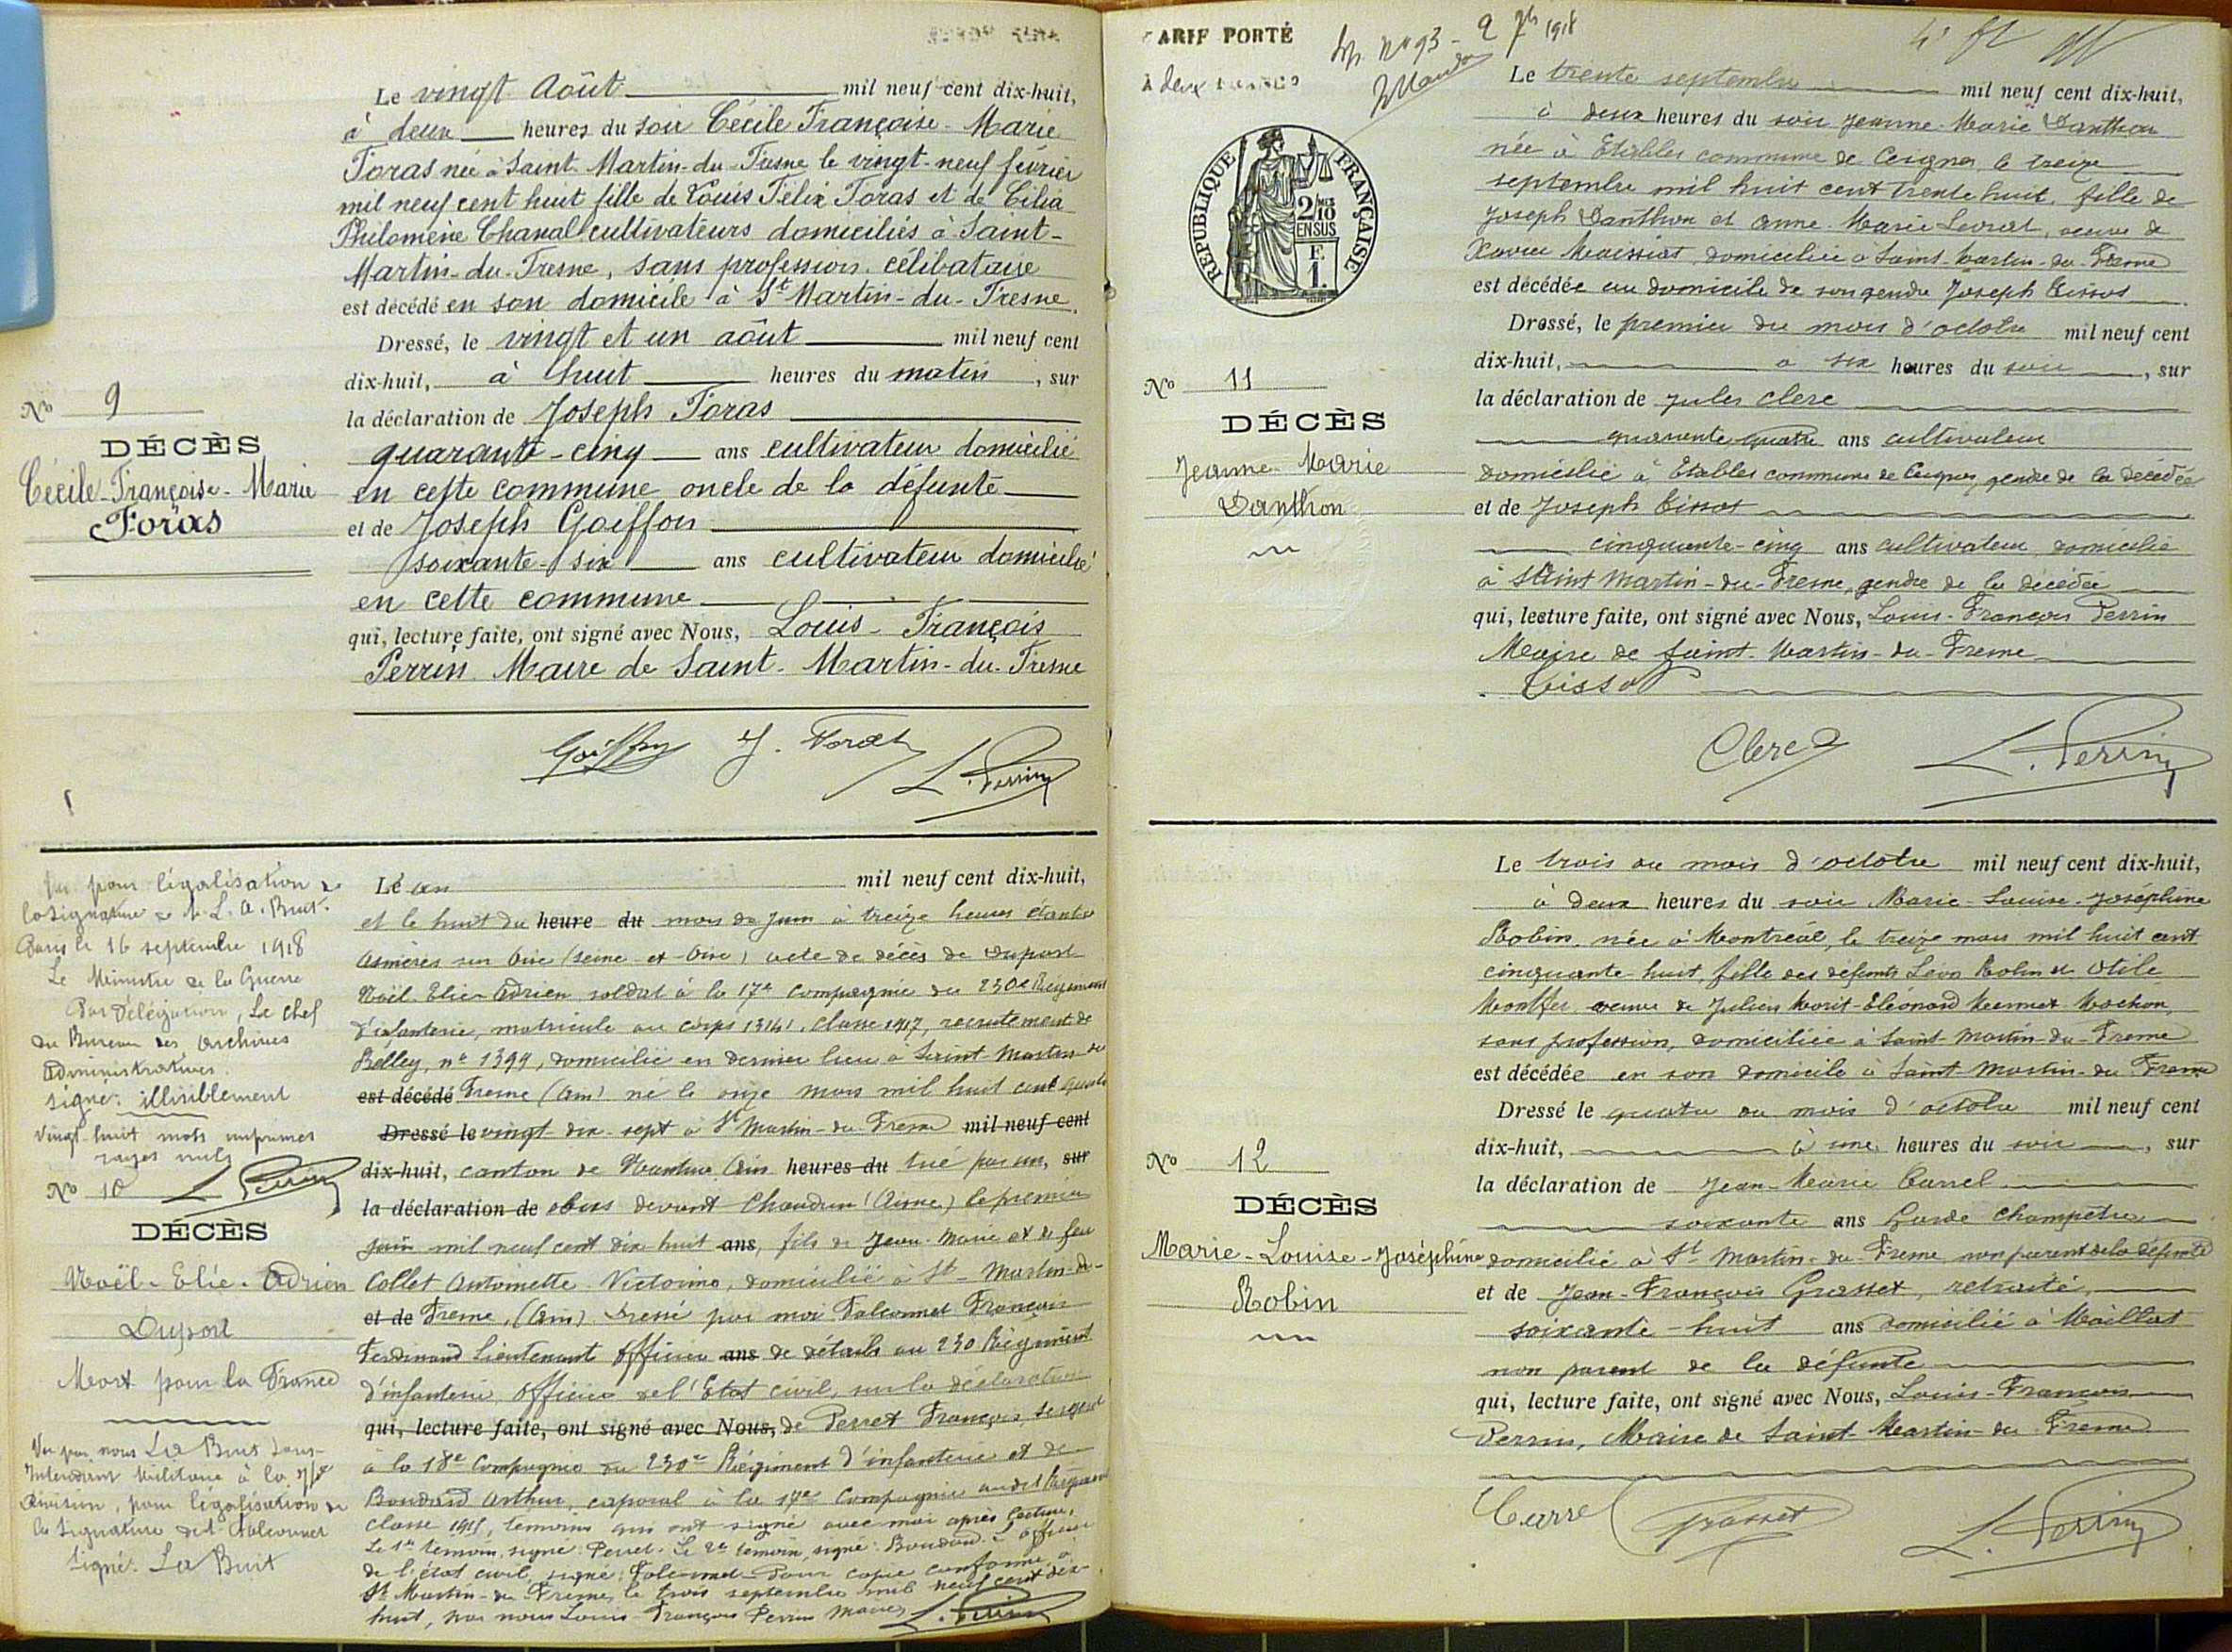 Le vingt Août mil neuf cent dix-huit,
à deux heures du soir Cécile Françoise-Marie
Foras née à Saint-Martin-du-Fresne le vingt-neuf février
mil neuf cent huit fille de Louis Félix Foras et de Célia
Philomène Chanal cultivateurs domiciliés à Saint-
Martin-du-Fresne, sans profession célibataire
est décédé en son domicile à St Martin-du-Fresne.
Dressé, le vingt et un août mil neuf cent
dix-huit, à huit heures du matin, sur
la déclaration de Joseph Foras
quarante-cinq ans cultivateur domicilié
en cette commune oncle de la défunte
et de Joseph Goiffon
soixante-six ans cultivateur domicilié
en cette commune
qui, lecture faite, ont signé avec Nous, Louis-François
Perrin Maire de Saint-Martin-du-Fresne
Goiffon J. Foras L. Perrin
No 9
DÉCÈS
Cécile-Françoise-Marie
Foras
Vu pour légalisation de
la signature de M. L. A. Buit.
Paris le 16 septembre 1918
Le Ministre de la Guerre
Par Délégation, Le Chef
du Bureau des Archives
Administratives.
signé: illisiblement
Vingt-huit mots imprimés
rayés nuls
L. Perrin
No 10
DÉCÈS
Noël-Elie-Adrien
Duport
Mort pour la France
Vu par nous La Buit Sous-
Intendant Militaire à la
Division, pour légalisation de
la signature de Mr Falconnet
Signé: La Buit
Le an mil neuf cent dix-huit,
et le huit du heure du mois de Juin à treize heures étant à
Asnières sur Oise (Seine-et-Oise) acte de décès de Duport
Noël-Elie-Adrien soldat à la 17e Compagnie du 230e Régiment
d'infanterie, matricule au corps 13141, Classe 1917, recrutement de
Belley, no 1399, domicilié en dernier lieu à Saint-Martin-du
est décédé Fresne (Ain) né le onze mars mil huit cent quatre
Dressé le vingt dix-sept à St Martin-du-Fresne mil neuf cent
dix-huit, canton de Nantua Ain heures du tué par un, sur
la déclaration de obus devant Chaudun (Aisne) le premier
juin mil neuf cent dix huit ans, fils de Jean-Marie et de feu
Collet Antoinette-Victorine, domicilié à St-Martin-du-
et de Fresne, (Ain) Dressé par moi Falconnet François
Ferdinand Lieutenant Officier ans de détails au 230 Régiment
d'infanterie, Officier de l'Etat civil, sur la déclaration
qui, lecture faite, ont signé avec Nous, de Perret François, Sergent
à la 18e Compagnie du 230e Régiment d'infanterie et de
Boudard Arthur, caporal à la 17e Compagnie audit Régiment
classe 1915, témoins qui ont signé avec moi après lecture.
Le 1er témoin, signé: Perret. Le 2e témoin, signé: Boudard. L'officier
de l'état civil, signé: Falconnet. Pour copie conforme à
St Martin-du-Fresne, le trois septembre mil neuf cent dix-
huit, par nous Louis-François Perrin Maire, L. Perrin
TARIF PORTÉ
à deux FRANCS
No 93 - 2 1918
RÉPUBLIQUE FRANÇAISE
2/10 MES
EN SUS
F.
1.
No 11
DÉCÈS
Jeanne-Marie
Danthon
Le trente septembre mil neuf cent dix-huit,
à deux heures du soir Jeanne-Marie Danthon
née à Etables commune de Ceignes le treize
septembre mil huit cent trente huit, fille de
Joseph Danthon et Anne-Marie Levrat, veuve de
Xavier Maissiat domiciliée à Saint-Martin-du-Fresne
est décédée au domicile de son gendre Joseph Tissot
Dressé, le premier du mois d'octobre mil neuf cent
dix-huit, à six heures du soir, sur
la déclaration de Jules Clerc
quarante quatre ans cultivateur
domicilié à Etables commune de Ceignes, gendre de la décédée
et de Joseph Tissot
cinquante-cinq ans cultivateur domicilié
à Saint Martin-du-Fresne, gendre de la décédée
qui, lecture faite, ont signé avec Nous, Louis-François Perrin
Maire de Saint-Martin-du-Fresne
Tissot
Clerc L. Perrin
No 12
DÉCÈS
Marie-Louise-Joséphine
Robin
Le trois au mois d'octobre mil neuf cent dix-huit,
à deux heures du soir Marie-Louise-Joséphine
Robin, née à Montréal, le treize mars mil huit cent
cinquante-huit, fille des défunts Léon Robin et Otile
veuve de Julien Moris-Eléonard Mermet-Mochon,
sans profession, domiciliée à Saint-Martin-du-Fresne
est décédée en son domicile à Saint Martin-du-Fresne
Dressé le quatre au mois d'octobre mil neuf cent
dix-huit, à une heures du soir, sur
la déclaration de Jean-Marie Carrel
soixante ans Garde Champêtre
domicilié à St Martin-du-Fresne non parent de la défunte
et de Jean-François Grasset, retraité,
soixante-huit ans domicilié à Maillat
non parent de la défunte
qui, lecture faite, ont signé avec Nous, Louis-François
Perrin, Maire de Saint-Martin-du-Fresne
Carrel Grasset L. Perrin